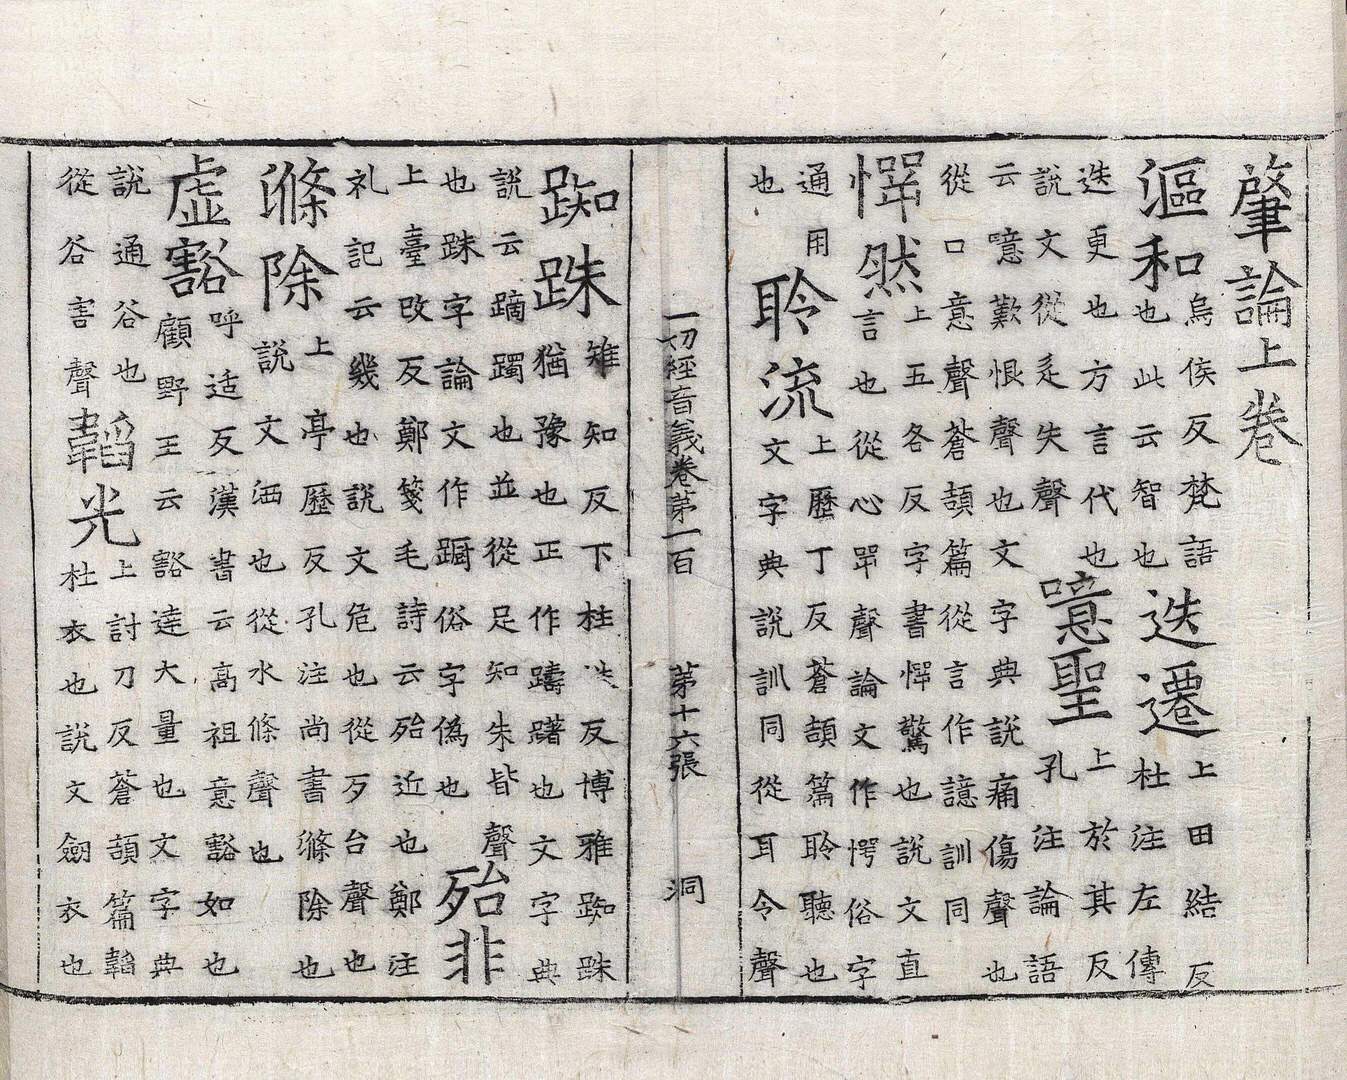 肇論上卷
漚和烏侯反梵語也此云智也迭遷上田結反杜注左傳
迭更也方言代也說文從辵失聲噫聖上於其反孔注論語
云噫歎恨聲也文字典說痛傷聲也從口意聲蒼頡篇從言作譩訓同
㦍然上五各反字書㦍驚也說文直言也從心㖾聲論文作愕俗字
通用也聆流上歷丁反蒼頡篇聆聽也文字典說訓同從耳令聲
一切經音義卷第一百 第十六張 洞
踟跦雉知反下柱反博雅踟跦猶豫也正作躊躇也文字典
說云蹢躅也並從足知朱皆聲也跦字論文作蹰俗字偽也殆非
上臺改反鄭箋毛詩云殆近也鄭注礼記云幾也說文危也從歹台聲也
滌除上亭歷反孔注尚書滌除也說文洒也從水條聲也
虛豁呼适反漢書云高祖意豁如也顧野王云豁達大量也文字典
說通谷也從谷害聲韜光上討刀反蒼頡篇韜杜衣也說文劒衣也